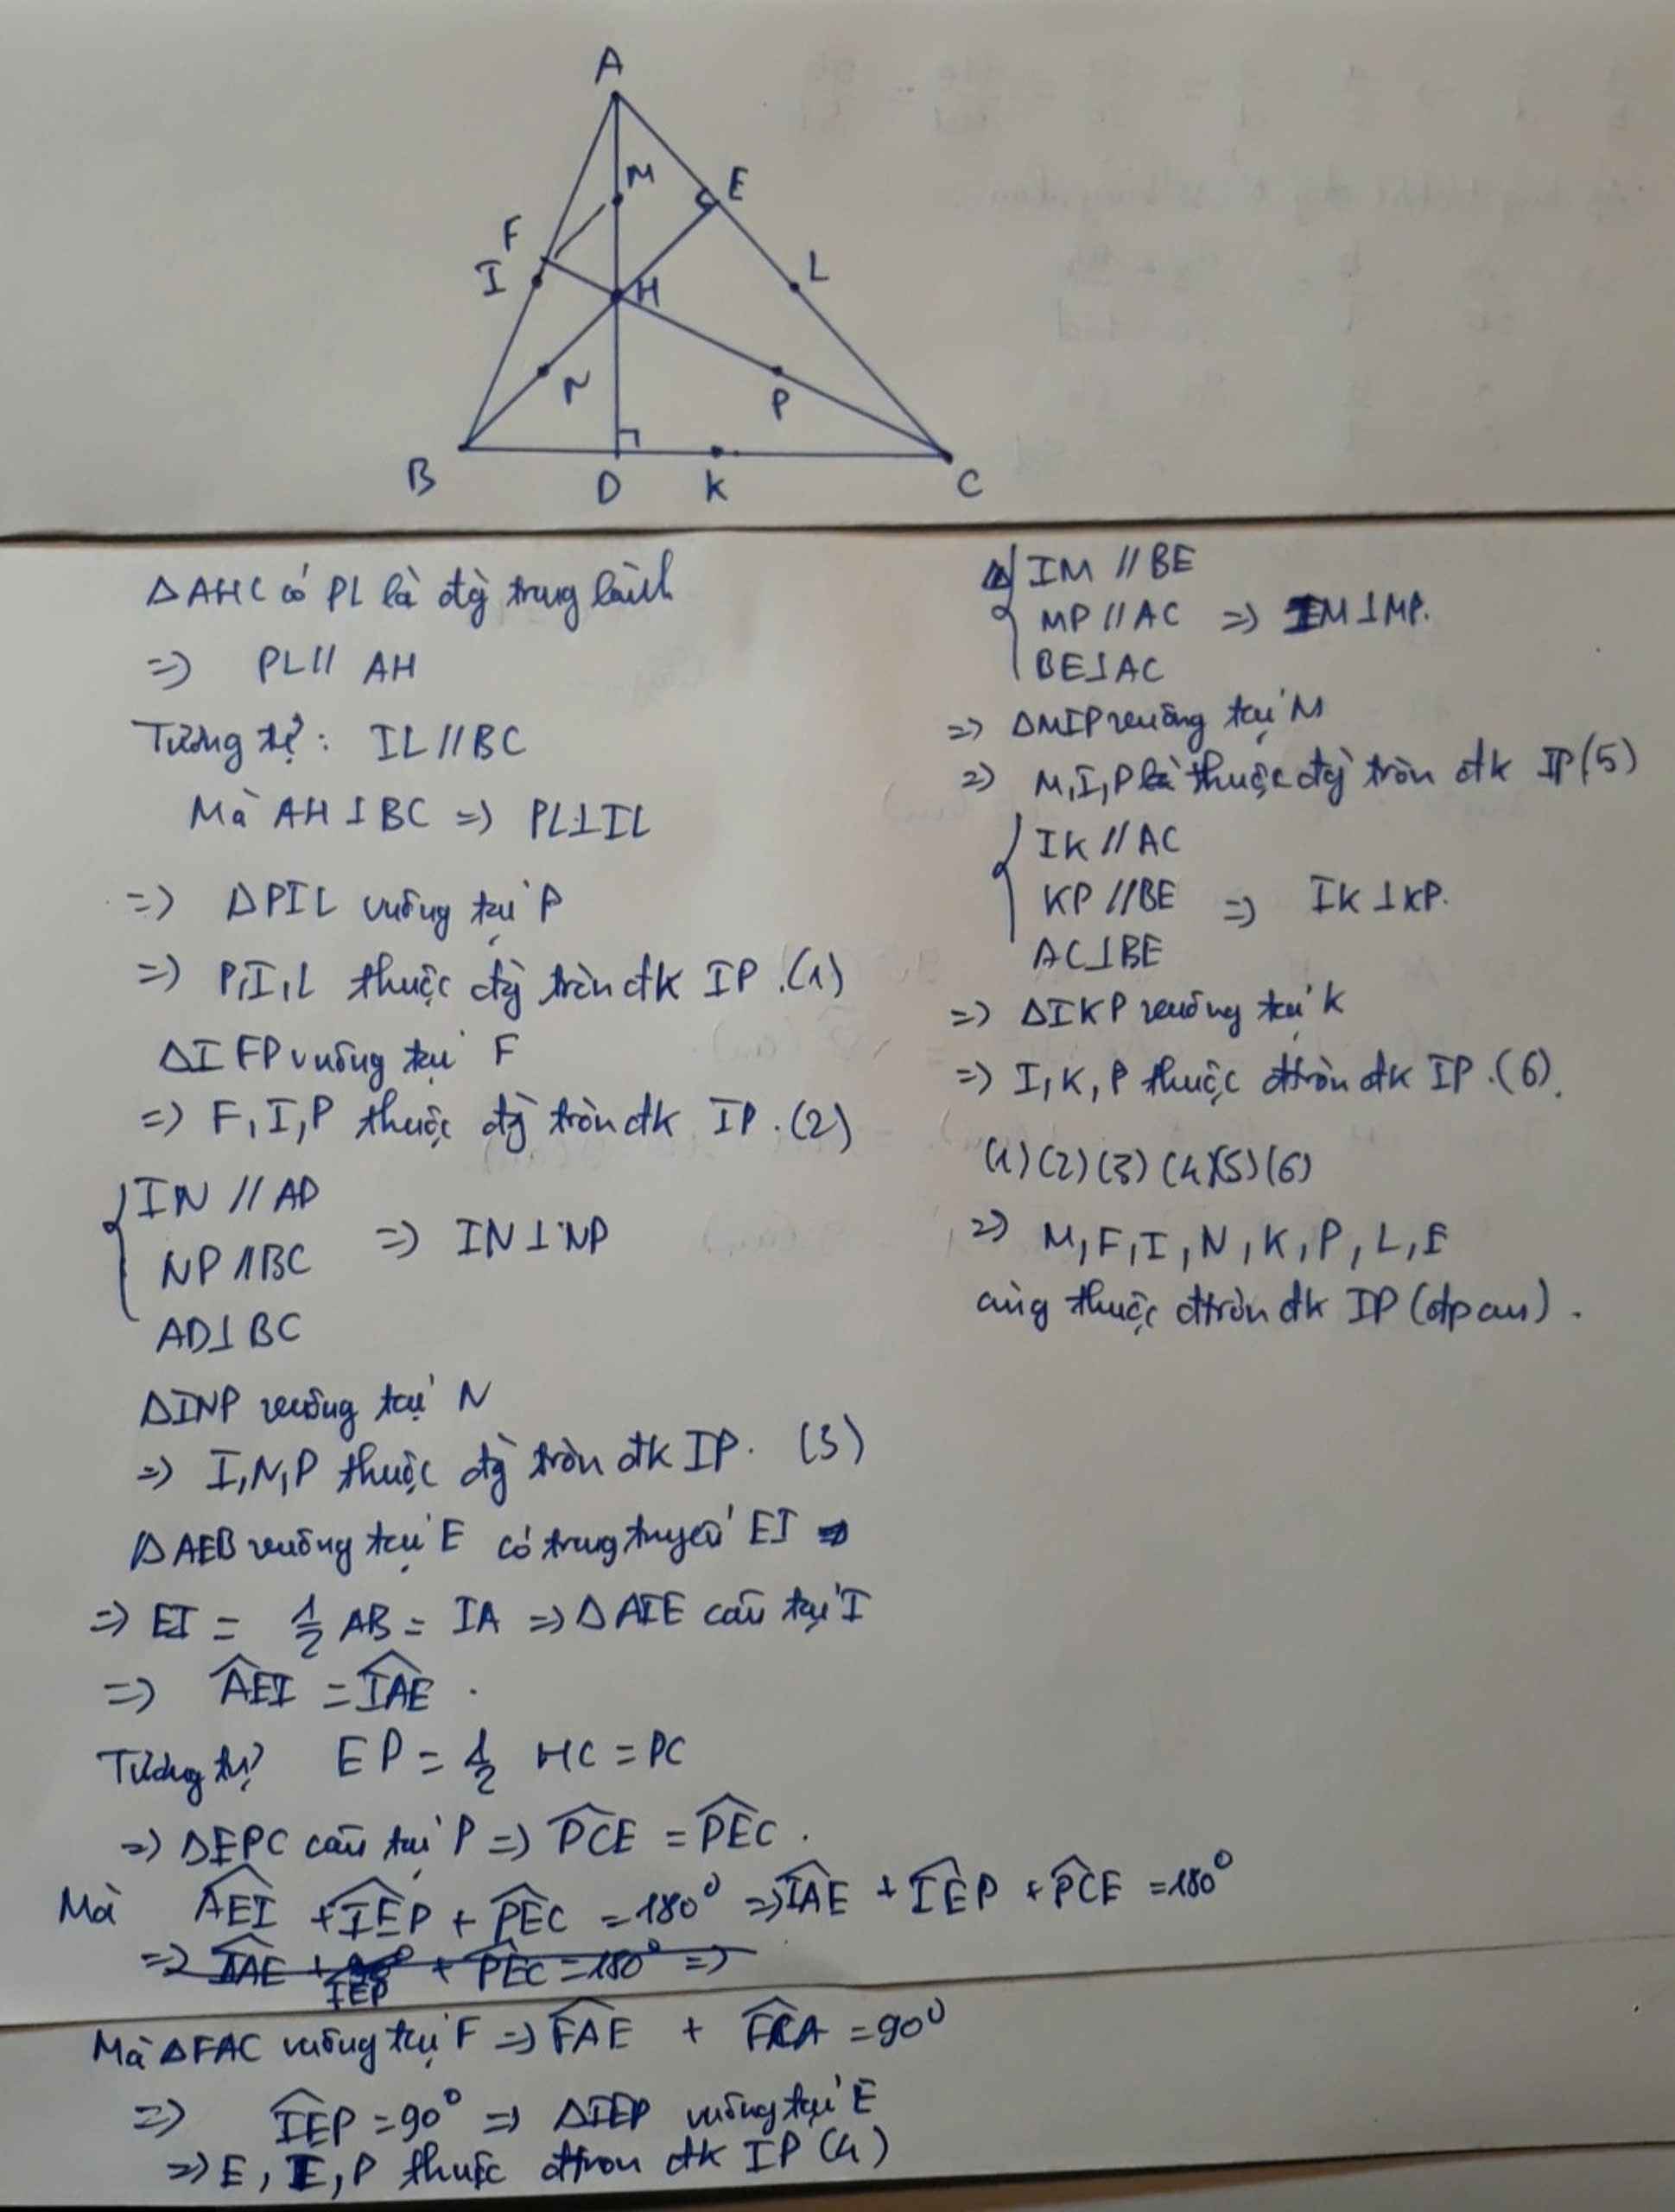 A
M
E
F
I
L
H
N
P
B
D
K
C
ΔAHC có PL là đg trung bình
=> PL // AH
Tương tự: IL // BC
Mà AH ⊥ BC => PL ⊥ IL
=> ΔPIL vuông tại P
=> P,I,L thuộc đg tròn đk IP. (1)
ΔIFP vuông tại F
=> F,I,P thuộc đg tròn đk IP. (2)
{ IN // AD
NP // BC => IN ⊥ NP
AD ⊥ BC
ΔINP vuông tại N
=> I,N,P thuộc đg tròn đk IP. (3)
ΔAEB vuông tại E có trung tuyến EI
=> EI = 1/2 AB = IA => ΔAIE cân tại I
=> \widehat{AEI} = \widehat{IAE}.
Tương tự EP = 1/2 HC = PC
=> ΔEPC cân tại P => \widehat{PCE} = \widehat{PEC}.
Mà \widehat{AEI} + \widehat{IEP} + \widehat{PEC} = 180° => \widehat{IAE} + \widehat{IEP} + \widehat{PCE} = 180°
=> \widehat{IAE} + \widehat{IEP} + \widehat{PEC} = 180° =>
Mà ΔFAC vuông tại F => \widehat{FAE} + \widehat{FCA} = 90°
=> \widehat{IEP} = 90° => ΔIEP vuông tại E
=> E, I, P thuộc đtròn đk IP (4)
{ IM // BE
MP // AC => IM ⊥ MP.
BE ⊥ AC
=> ΔMIP vuông tại M
=> M,I,P thuộc đg tròn đk IP (5)
{ IK // AC
KP // BE => IK ⊥ KP.
AC ⊥ BE
=> ΔIKP vuông tại K
=> I,K,P thuộc đtròn đk IP. (6).
(1) (2) (3) (4) (5) (6)
=> M,F,I,N,K,P,L,E
cùng thuộc đtròn đk IP (đpcm).